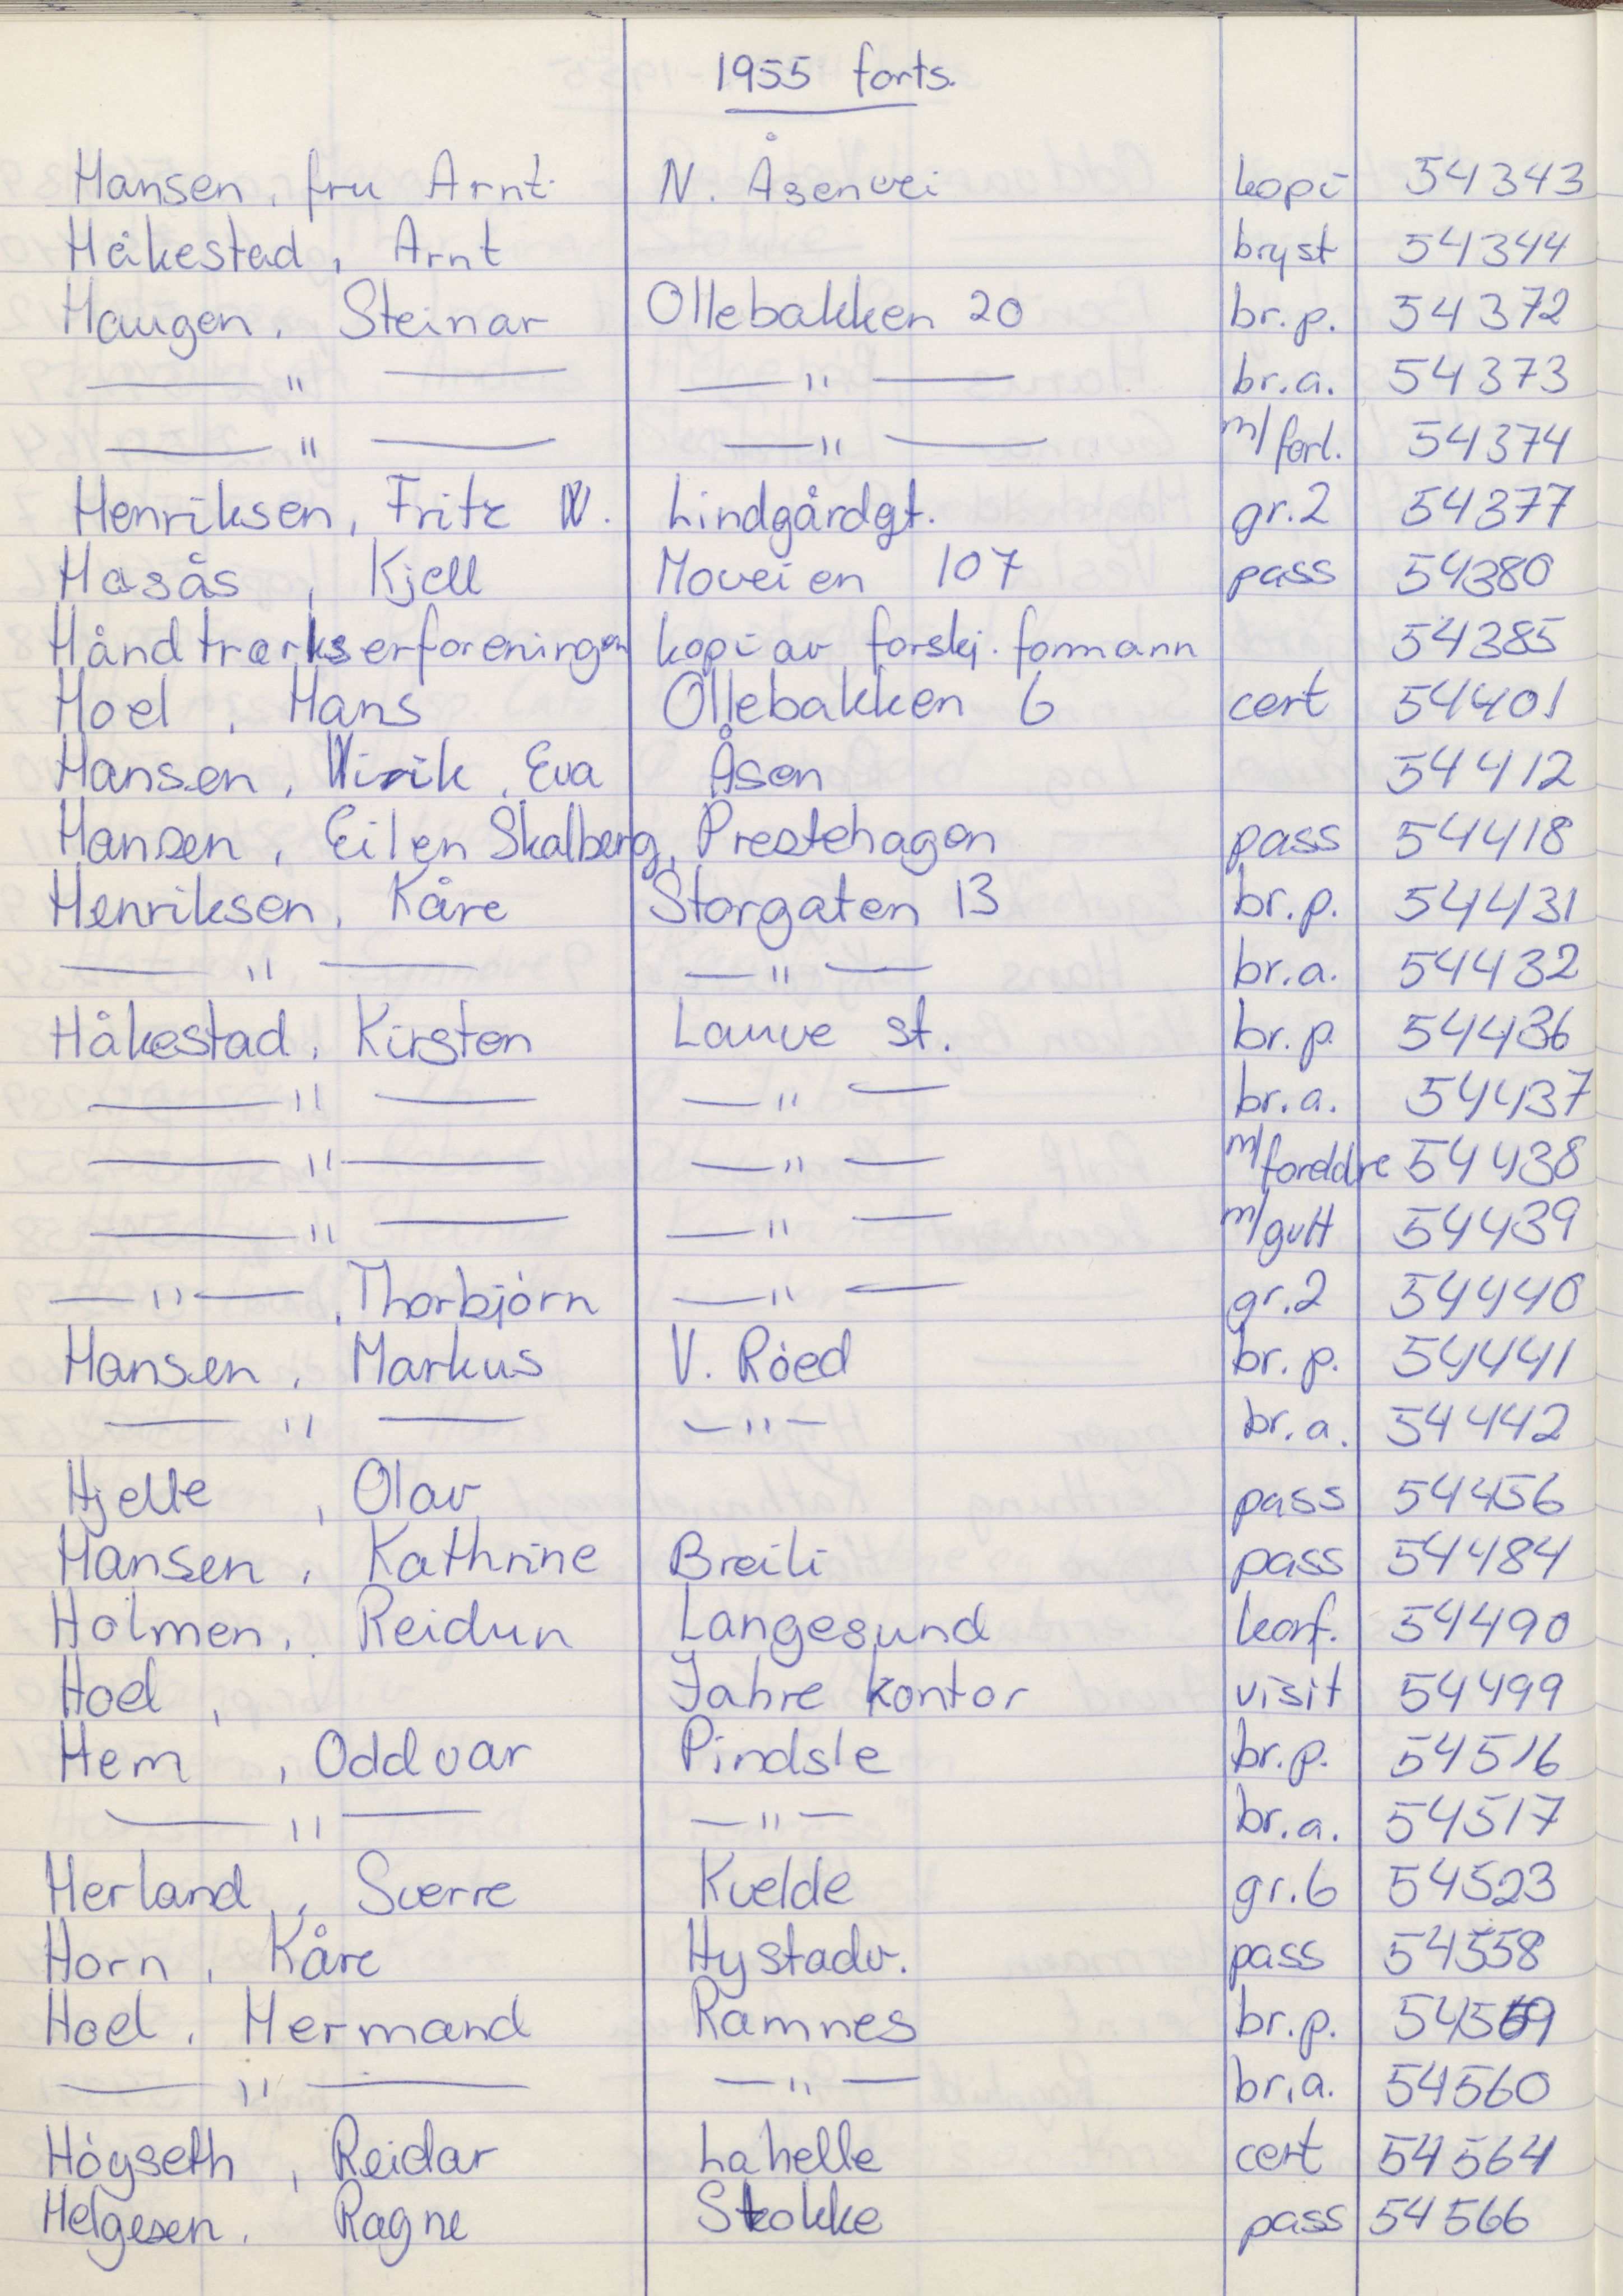 1955 forts.
Hansen, fru Arnt. N. Åsenvei kopi 54343
Håkestad, Arnt bryst 54344
Haugen, Steinar Ollebakken 20 br.p. 54372
—"— —"— br.a. 54373
—"— —"— m/forl. 54374
Henriksen, Fritz W. Lindgårdgt. gr.2 54377
Hasås, Kjell Moveien 107 pass 54380
Håndtrærkserforeningen kopi av forskj. formann 54385
Hoel, Hans Ollebakken 6 cert 54401
Hansen, Virik, Eva Åsen 54412
Hansen, Eilen Skalberg, Prestehagen pass 54418
Henriksen, Kåre Storgaten 13 br.p. 54431
—"— —"— br.a. 54432
Håkestad, Kirsten Lauve st. br.p. 54436
—"— —"— br.a. 54437
—"— —"— m/foreldre 54438
—"— —"— m/gutt 54439
—"—, Thorbjørn —"— gr.2 54440
Hansen, Markus V. Røed br.p. 54441
—"— —"— br.a. 54442
Hjelle, Olav pass 54456
Hansen, Kathrine Breili pass 54484
Holmen, Reidun Langesund konf. 54490
Hoel, Jahre kontor visit 54499
Hem, Oddvar Pindsle br.p. 54516
—"— —"— br.a. 54517
Herland, Sverre Kvelde gr.6 54523
Horn, Kåre Hystadv. pass 54558
Hoel, Hermand Ramnes br.p. 54559
—"— —"— br.a. 54560
Høgseth, Reidar Lahelle cert 54564
Helgesen, Ragne Stokke pass 54566